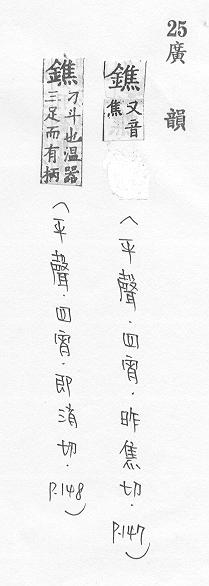 25廣韻
鐎 又音焦 〈平聲.四宵.昨焦切.P.147〉
鐎 刁斗也溫器三足而有柄 〈平聲.四宵.即消切.P.148〉